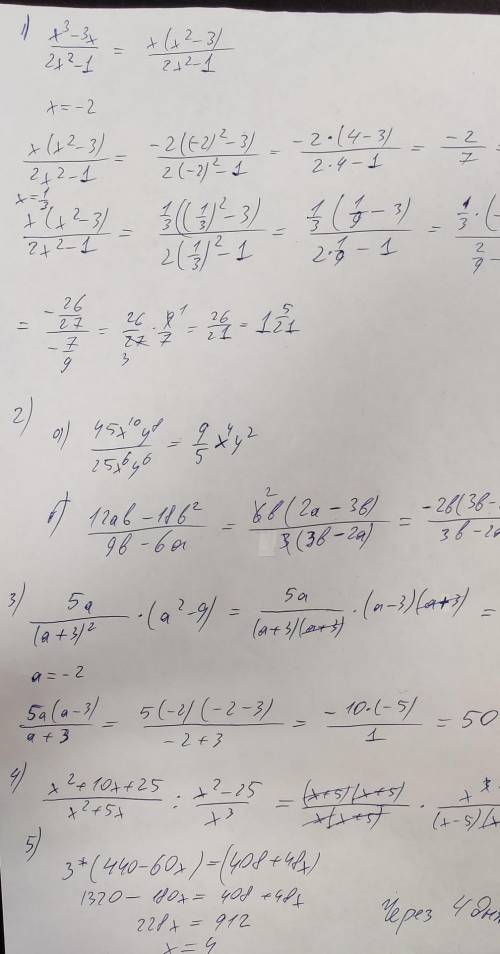 1) (x³-3x)/(2x²-1) = x(x²-3)/(2x²-1)
x=-2
x(x²-3)/(2x²-1) = -2((-2)²-3)/(2(-2)²-1) = -2·(4-3)/(2·4-1) = -2/7 =
x=1/3
x(x²-3)/(2x²-1) = 1/3((1/3)²-3)/(2(1/3)²-1) = 1/3(1/9-3)/(2·1/9-1) = 1/3·(-/(2/9-
= (-26/27)/(-7/9) = 26/27·9/7 = 26/21 = 1 5/21
2)
а) 45x¹⁰y⁸/25x⁶y⁶ = 9/5 x⁴y²
б) (12ab-18b²)/(9b-6a) = 6b(2a-3b)/3(3b-2a) = -2b(3b-/3b-2a
3) 5a/(a+3)² · (a²-9) = 5a/(a+3)(a+3) · (a-3)(a+3) =
a=-2
5a(a-3)/(a+3) = 5(-2)(-2-3)/(-2+3) = -10·(-5)/1 = 50
4) (x²+10x+25)/(x²+5x) : (x²-25)/x³ = (x+5)(x+5)/x(x+5) · x³/(x-5)(x
5)
3*(440-60x)=(408+48x)
1320-180x=408+48x
228x=912
x=4
Через 4 дн